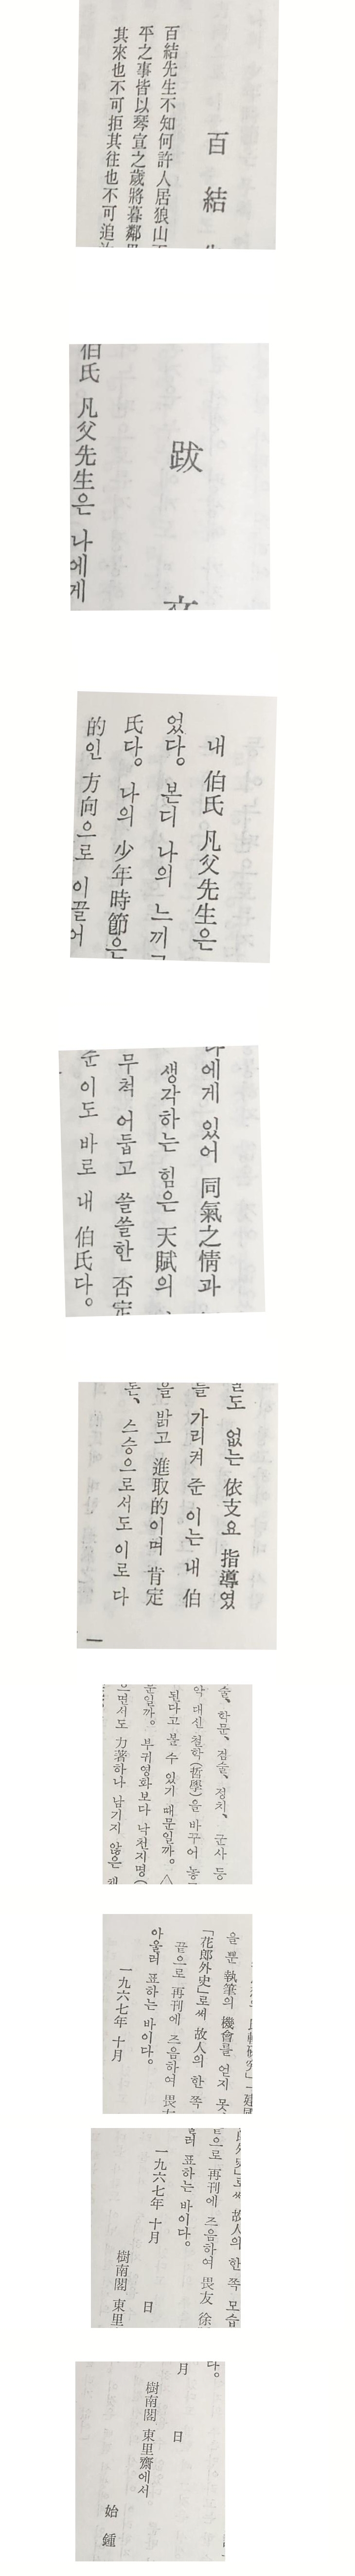 百結
百結先生不知何許人居狼山
平之事皆以琴宣之歲將暮鄰
其來也不可拒其往也不可追
跋
伯氏 凡父先生은 나에게
내 伯氏 凡父先生은
었다。 본디 나의 느끼고
氏다。 나의 少年時節은
的인 方向으로 이끌어
나에게 있어 同氣之情과
생각하는 힘은 天賦의
무척 어둡고 쓸쓸한 否定
준 이도 바로 내 伯氏다。
도 없는 依支요 指導였
들 가리켜 준 이는 내 伯
을 밝고 進取的이며 肯定
든、 스승으로서도 이로 다
一
술、학문、검술、정치、군사 등
악 대신 철학(哲學)을 바꾸어 놓
된다고 볼 수 있기 때문일까。
문일까。 부귀영화보다 낙천지명(
으면서도 力著하나 남기지 않은 채
을 뿐 執筆의 機會를 얻지 못
「花郎外史」로써 故人의 한 쪽
끝으로 再刊에 즈음하여 畏友
아울러 표하는 바이다。
一九六七年 十月
郎外史」로써 故人의 한 쪽 모습
끝으로 再刊에 즈음하여 畏友 徐
울러 표하는 바이다。
一九六七年 十月 日
樹南閣 東里
다。
月 日
樹南閣 東里齋에서
始鍾